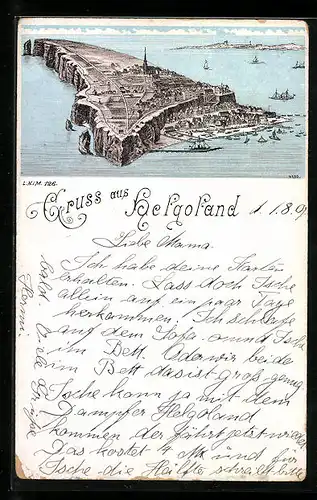 L.H.i.M. 726.
Gruss aus Helgoland
d. 1.8.9
Liebe Mama.
Ich habe deine Karten
erhalten. Lass doch Ische
allein auf ein paar Tage
herkommen. Ich schlafe
auf dem Sofa und Ische
im Bett. Oder wir beide
im Bett das ist groß genug
Ische kann ja mit dem
Dampfer Helgoland
kommen der fährt jetzt wieder
Das kostet 4 Mk und für
Ische die Hälfte
bald Viele Grüße